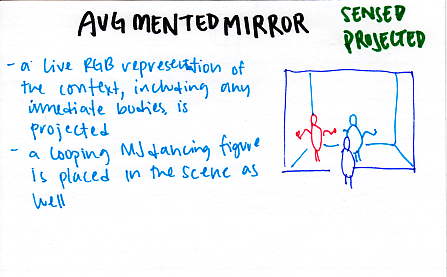 AUGMENTED MIRROR
SENSED
PROJECTED
- a live RGB representation of
the context, including any
immediate bodies, is
projected
- a looping MJ dancing figure
is placed in the scene as
well